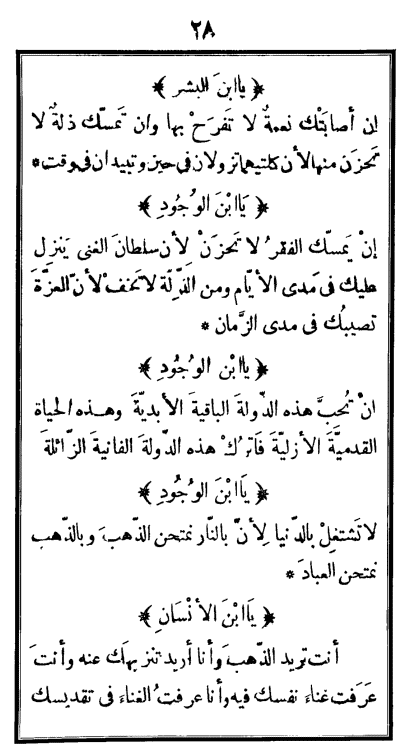 ٢٨
﴿ يَا ابنَ البشر ﴾
اِن أصابَتْك نعمةٌ لا تَفْرَحْ بها وان تَمسّك ذلةٌ لا
تَحزَن منها لأن كلتيهما تزولان فى حين وتبيدان فى وقت *
﴿ يَا ابْنَ الوُجُودِ ﴾
إنْ يَمسّك الفقرُ لا تَحزَنْ لأن سلطانَ الغنى يَنزِل
عليك فى مَدى الأيّام ومن الذّلِّة لا تَخَفْ لأنّ العزّةَ
تصيبُك فى مدى الزَّمان *
﴿ يَا ابْن الوُجُودِ ﴾
انْ تُحبَّ هذه الدّولةَ الباقيةَ الأبديّةَ وهذه الحياةَ
القدميَّةَ الأزليّةَ فَاترُكْ هذه الدّولةَ الفانيةَ الزّائلةَ
﴿ يَا ابْنَ الوُجُودِ ﴾
لا تَشتغِلْ بالدّنيا لِأنَّ بالنّار نمتحن الذّهبَ وبالذّهب
نمتحن العبادَ *
﴿ يَا ابْنَ الأنْسَانِ ﴾
أنت تريد الذّهبَ وأنا أريد تنزيهَك عنه وأنتَ
عَرَفت غناءَ نفسك فيه وأنا عرفتُ الغناءَ فى تقديسك